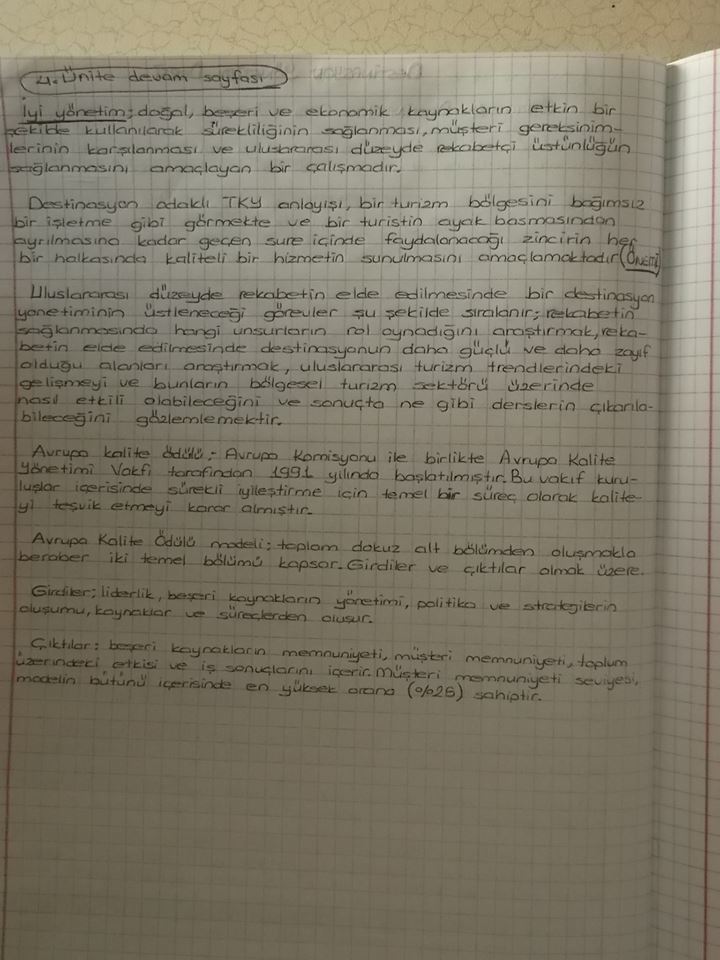 4. Ünite devam sayfası
İyi yönetim; doğal, beşeri ve ekonomik kaynakların etkin bir
şekilde kullanılarak sürekliliğinin sağlanması, müşteri gereksinim-
lerinin karşılanması ve uluslararası düzeyde rekabetçi üstünlüğün
sağlanmasını amaçlayan bir çalışmadır.
Destinasyon odaklı TKY anlayışı, bir turizm bölgesini bağımsız
bir işletme gibi görmekte ve bir turistin ayak basmasından
ayrılmasına kadar geçen sure içinde faydalanacağı zincirin her
bir halkasında kaliteli bir hizmetin sunulmasını amaçlamaktadır (ÖNEMİ)
Uluslararası düzeyde rekabetin elde edilmesinde bir destinasyon
yönetiminin üstleneceği görevler şu şekilde sıralanır; rekabetin
sağlanmasında hangi unsurların rol oynadığını araştırmak, reka-
betin elde edilmesinde destinasyonun daha güçlü ve daha zayıf
olduğu alanları araştırmak, uluslararası turizm trendlerindeki
gelişmeyi ve bunların bölgesel turizm sektörü üzerinde
nasıl etkili olabileceğini ve sonuçta ne gibi derslerin çıkarıla-
bileceğini gözlemlemektir.
Avrupa kalite ödülü; Avrupa Komisyonu ile birlikte Avrupa Kalite
Yönetimi Vakfı tarafından 1991 yılında başlatılmıştır. Bu vakıf kuru-
luşlar içerisinde sürekli iyileştirme için temel bir süreç olarak kalite-
yi teşvik etmeyi karar almıştır.
Avrupa Kalite Ödülü modeli; toplam dokuz alt bölümden oluşmakla
beraber iki temel bölümü kapsar. Girdiler ve çıktılar olmak üzere.
Girdiler; liderlik, beşeri kaynakların yönetimi, politika ve stratejilerin
oluşumu, kaynaklar ve süreçlerden oluşur.
Çıktılar; beşeri kaynakların memnuniyeti, müşteri memnuniyeti, toplum
üzerindeki etkisi ve iş sonuçlarını içerir. Müşteri memnuniyeti seviyesi,
modelin bütünü içerisinde en yüksek orana (%25) sahiptir.